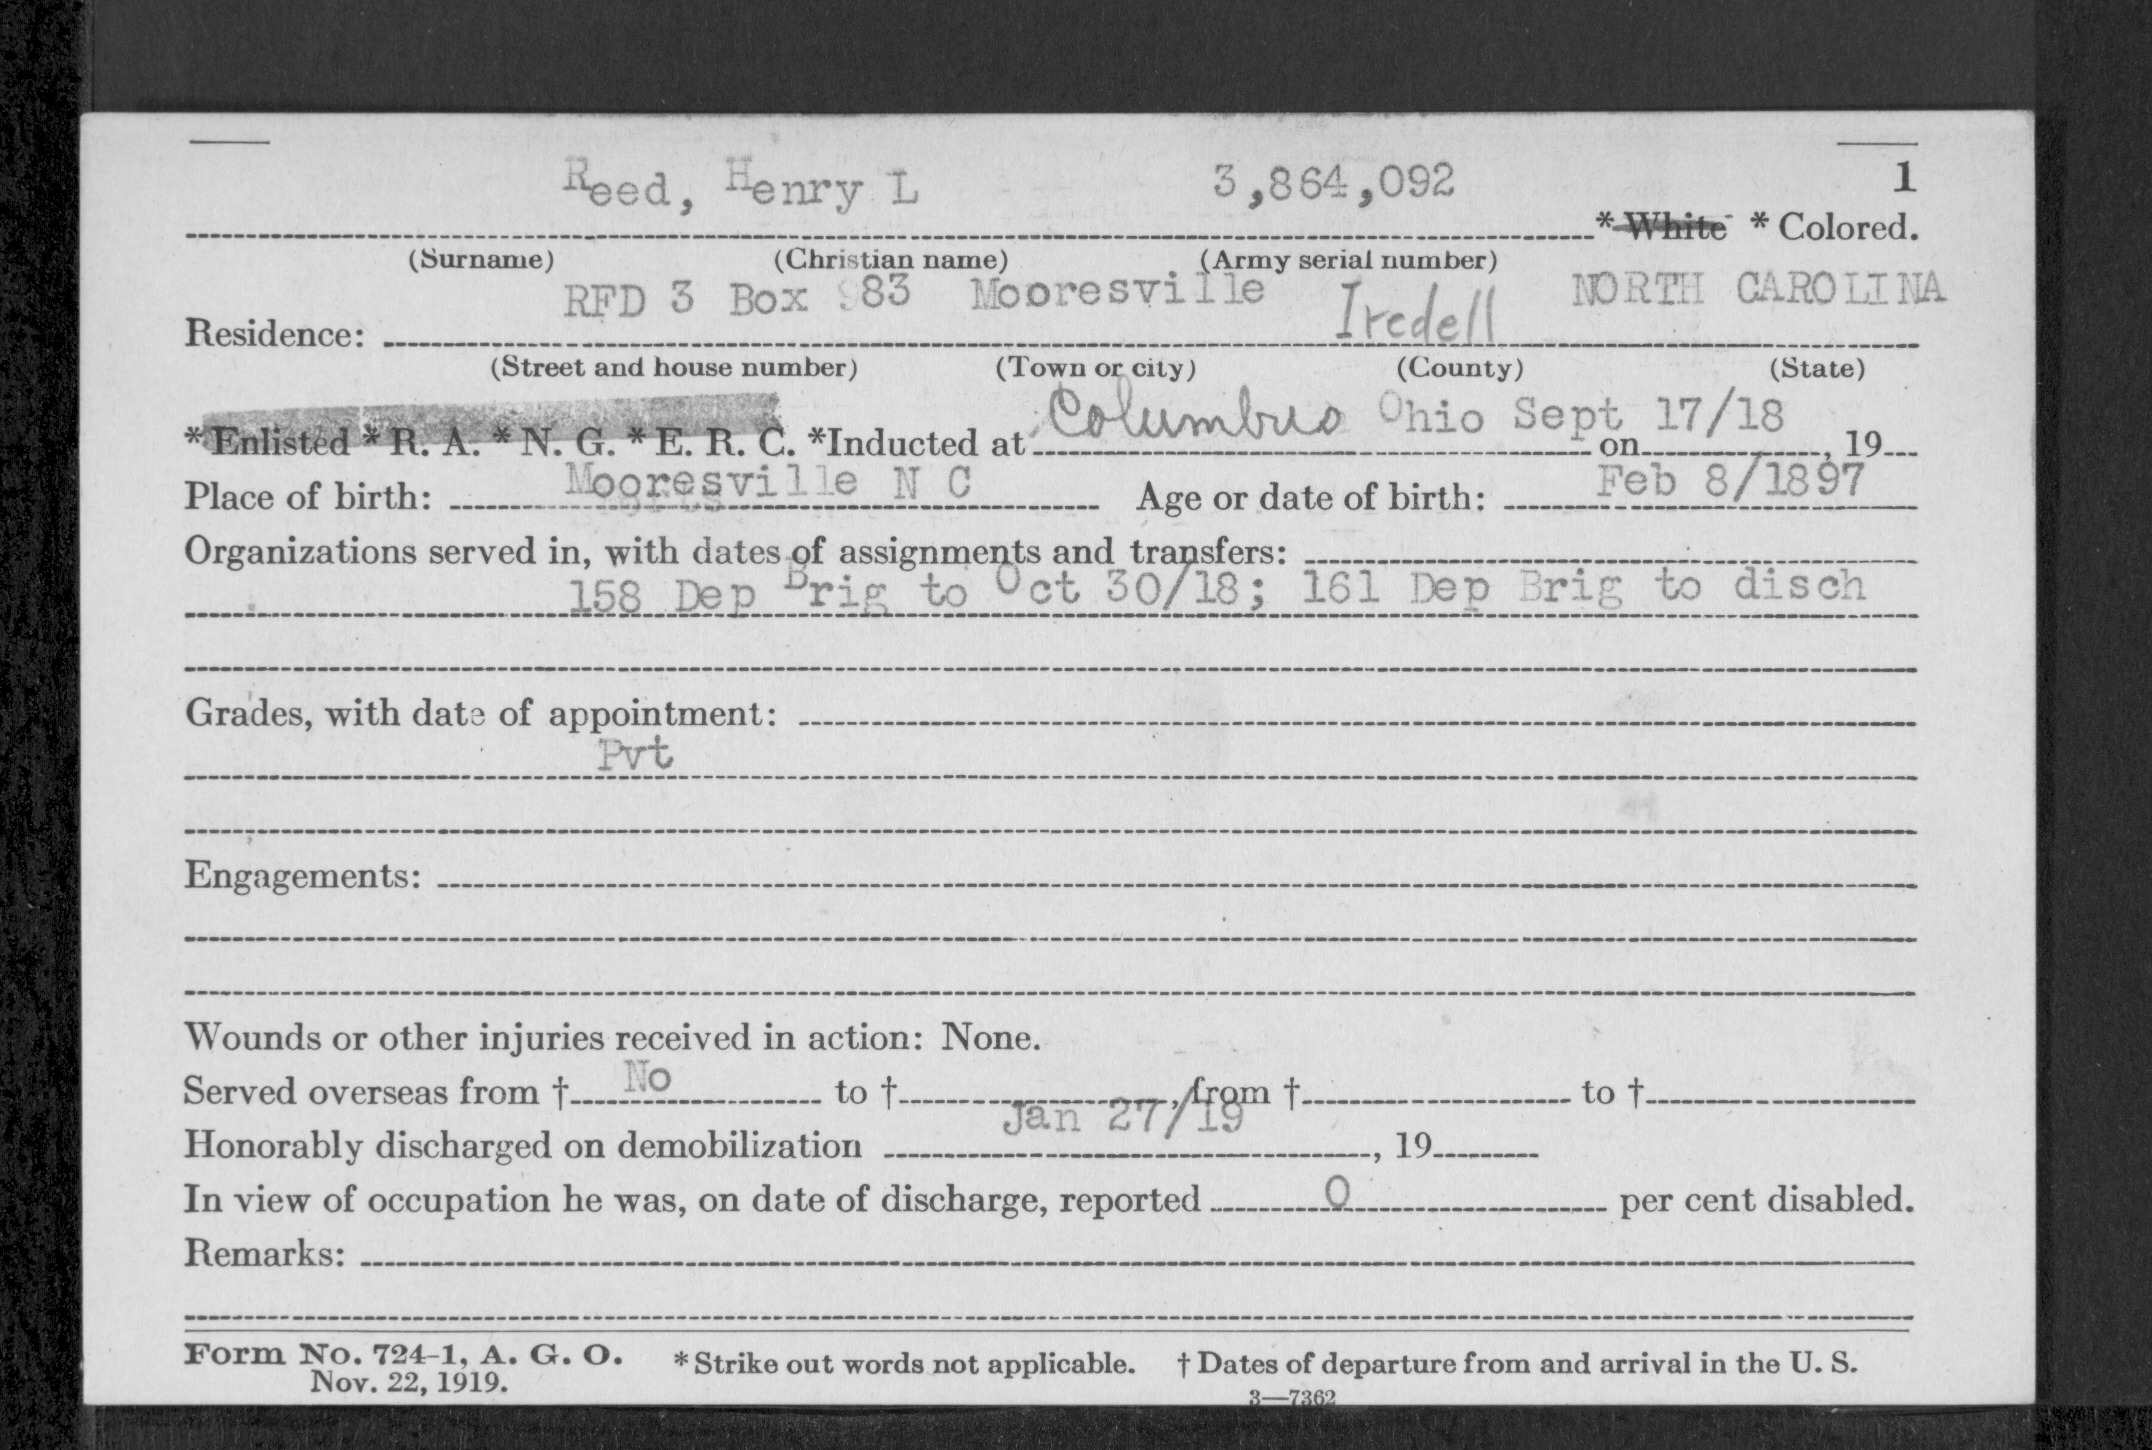 Reed, Henry L 3,864,092 1
* White * Colored.
(Surname) (Christian name) (Army serial number)
RFD 3 Box 83 Mooresville Iredell NORTH CAROLINA
Residence:
(Street and house number) (Town or city) (County) (State)
* Enlisted * R. A. * N. G. * E. R. C. *Inducted at Columbus Ohio Sept 17/18 on , 19
Place of birth: Mooresville N C Age or date of birth: Feb 8/1897
Organizations served in, with dates of assignments and transfers:
158 Dep Brig to Oct 30/18; 161 Dep Brig to disch
Grades, with date of appointment:
Pvt
Engagements:
Wounds or other injuries received in action: None.
Served overseas from † No to † , from † to †
Honorably discharged on demobilization Jan 27/19 , 19
In view of occupation he was, on date of discharge, reported 0 per cent disabled.
Remarks:
Form No. 724-1, A. G. O. * Strike out words not applicable. † Dates of departure from and arrival in the U. S.
Nov. 22, 1919.
3—7362